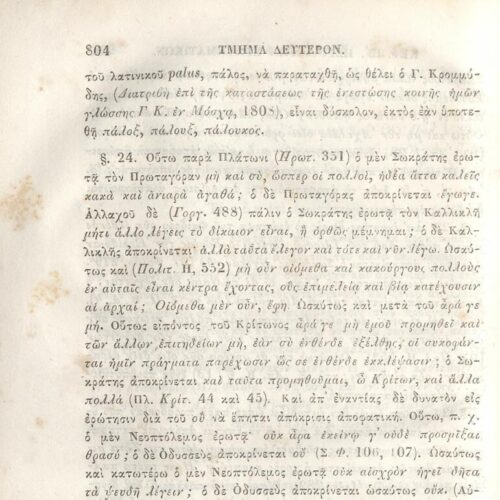 804 ΤΜΗΜΑ ΔΕΥΤΕΡΟΝ.
τοῦ λατινικοῦ palus, πάλος, νὰ παραταχθῇ, ὡς θέλει ὁ Γ. Κρομμύ-
δης, (Διατριβὴ ἐπὶ τῆς καταστάσεως τῆς ἐνεστώσης κοινῆς ἡμῶν
γλώσσης Γ Κ. ἐν Μόσχᾳ, 1808), εἶναι δύσκολον, ἐκτὸς ἐὰν ὑποτε-
θῇ πάλοξ, πάλουξ, πάλουκος.
§. 24. Οὕτω παρὰ Πλάτωνι (Πρωτ. 351) ὁ μὲν Σωκράτης ἐρω-
τᾷ τὸν Πρωταγόραν μὴ καὶ σὺ, ὥσπερ οἱ πολλοὶ, ἡδέα ἄττα καλεῖς
κακὰ καὶ ἀνιαρὰ ἀγαθά; ὁ δὲ Πρωταγόρας ἀποκρίνεται ἔγωγε.
Ἀλλαχοῦ δὲ (Γοργ. 488) πάλιν ὁ Σωκράτης ἐρωτᾷ τὸν Καλλικλῆ
μήτι ἄλλο λέγεις τὸ δίκαιον εἶναι, ἢ ὀρθῶς μέμνημαι; ὁ δὲ Καλ-
λικλῆς ἀποκρίνεται ἀλλὰ ταῦτα ἔλεγον καὶ τότε καὶ νῦν λέγω. Ὡσαύ-
τως καὶ (Πολιτ. Η, 552) μὴ οὖν οἰόμεθα καὶ κακούργους πολλοὺς
ἐν αὐταῖς εἶναι κέντρα ἔχοντας, οὓς ἐπιμελείᾳ καὶ βίᾳ κατέχουσιν
αἱ ἀρχαί; Οἰόμεθα μὲν οὖν, ἔφη. Ὡσαύτως καὶ μετὰ τοῦ ἆρά γε
μή. Οὕτως εἰπόντος τοῦ Κρίτωνος ἆρά γε μὴ ἐμοῦ προμηθεῖ καὶ
τῶν ἄλλων ἐπιτηδείων μὴ, ἐὰν σὺ ἐνθένδε ἐξέλθῃς, οἱ συκοφάν-
ται ἡμῖν πράγματα παρέχωσιν ὥς σε ἐνθένδε ἐκκλέψασιν; ὁ Σω-
κράτης ἀποκρίνεται καὶ ταῦτα προμηθοῦμαι, ὦ Κρίτων, καὶ ἄλλα
πολλά (Πλ. Κρίτ. 44 καὶ 45). Καὶ ἀπ᾿ ἐναντίας δὲ δυνατὸν εἰς
ἐρώτησιν διὰ τοῦ οὐ νὰ ἕπηται ἀπόκρισις ἀποφατική. Οὕτω, π. χ.
ὁ μὲν Νεοπτόλεμος ἐρωτᾷ οὐκ ἆρα ἐκείνῳ γ᾿ οὐδὲ προσμῖξαι
θρασύ; ὁ δὲ Ὀδυσσεὺς ἀποκρίνεται οὔ (Σ. Φ. 106, 107). Ὡσαύτως
καὶ κατωτέρω ὁ μὲν Νεοπτόλεμος ἐρωτᾷ οὐκ αἰσχρὸν ἡγεῖ δῆτα
τὰ ψευδῆ λέγειν; ὁ δὲ Ὀδυσσεὺς ἀποκρίνεται ὡσαύτως οὐκ. (Αὐ-